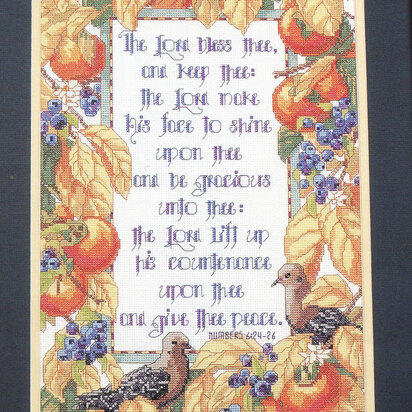 The Lord bless thee,
and keep thee:
the Lord make
his face to shine
upon thee
and be gracious
unto thee:
the Lord lift up
his countenance
upon thee
and give thee peace.
NUMBERS 6:24-26